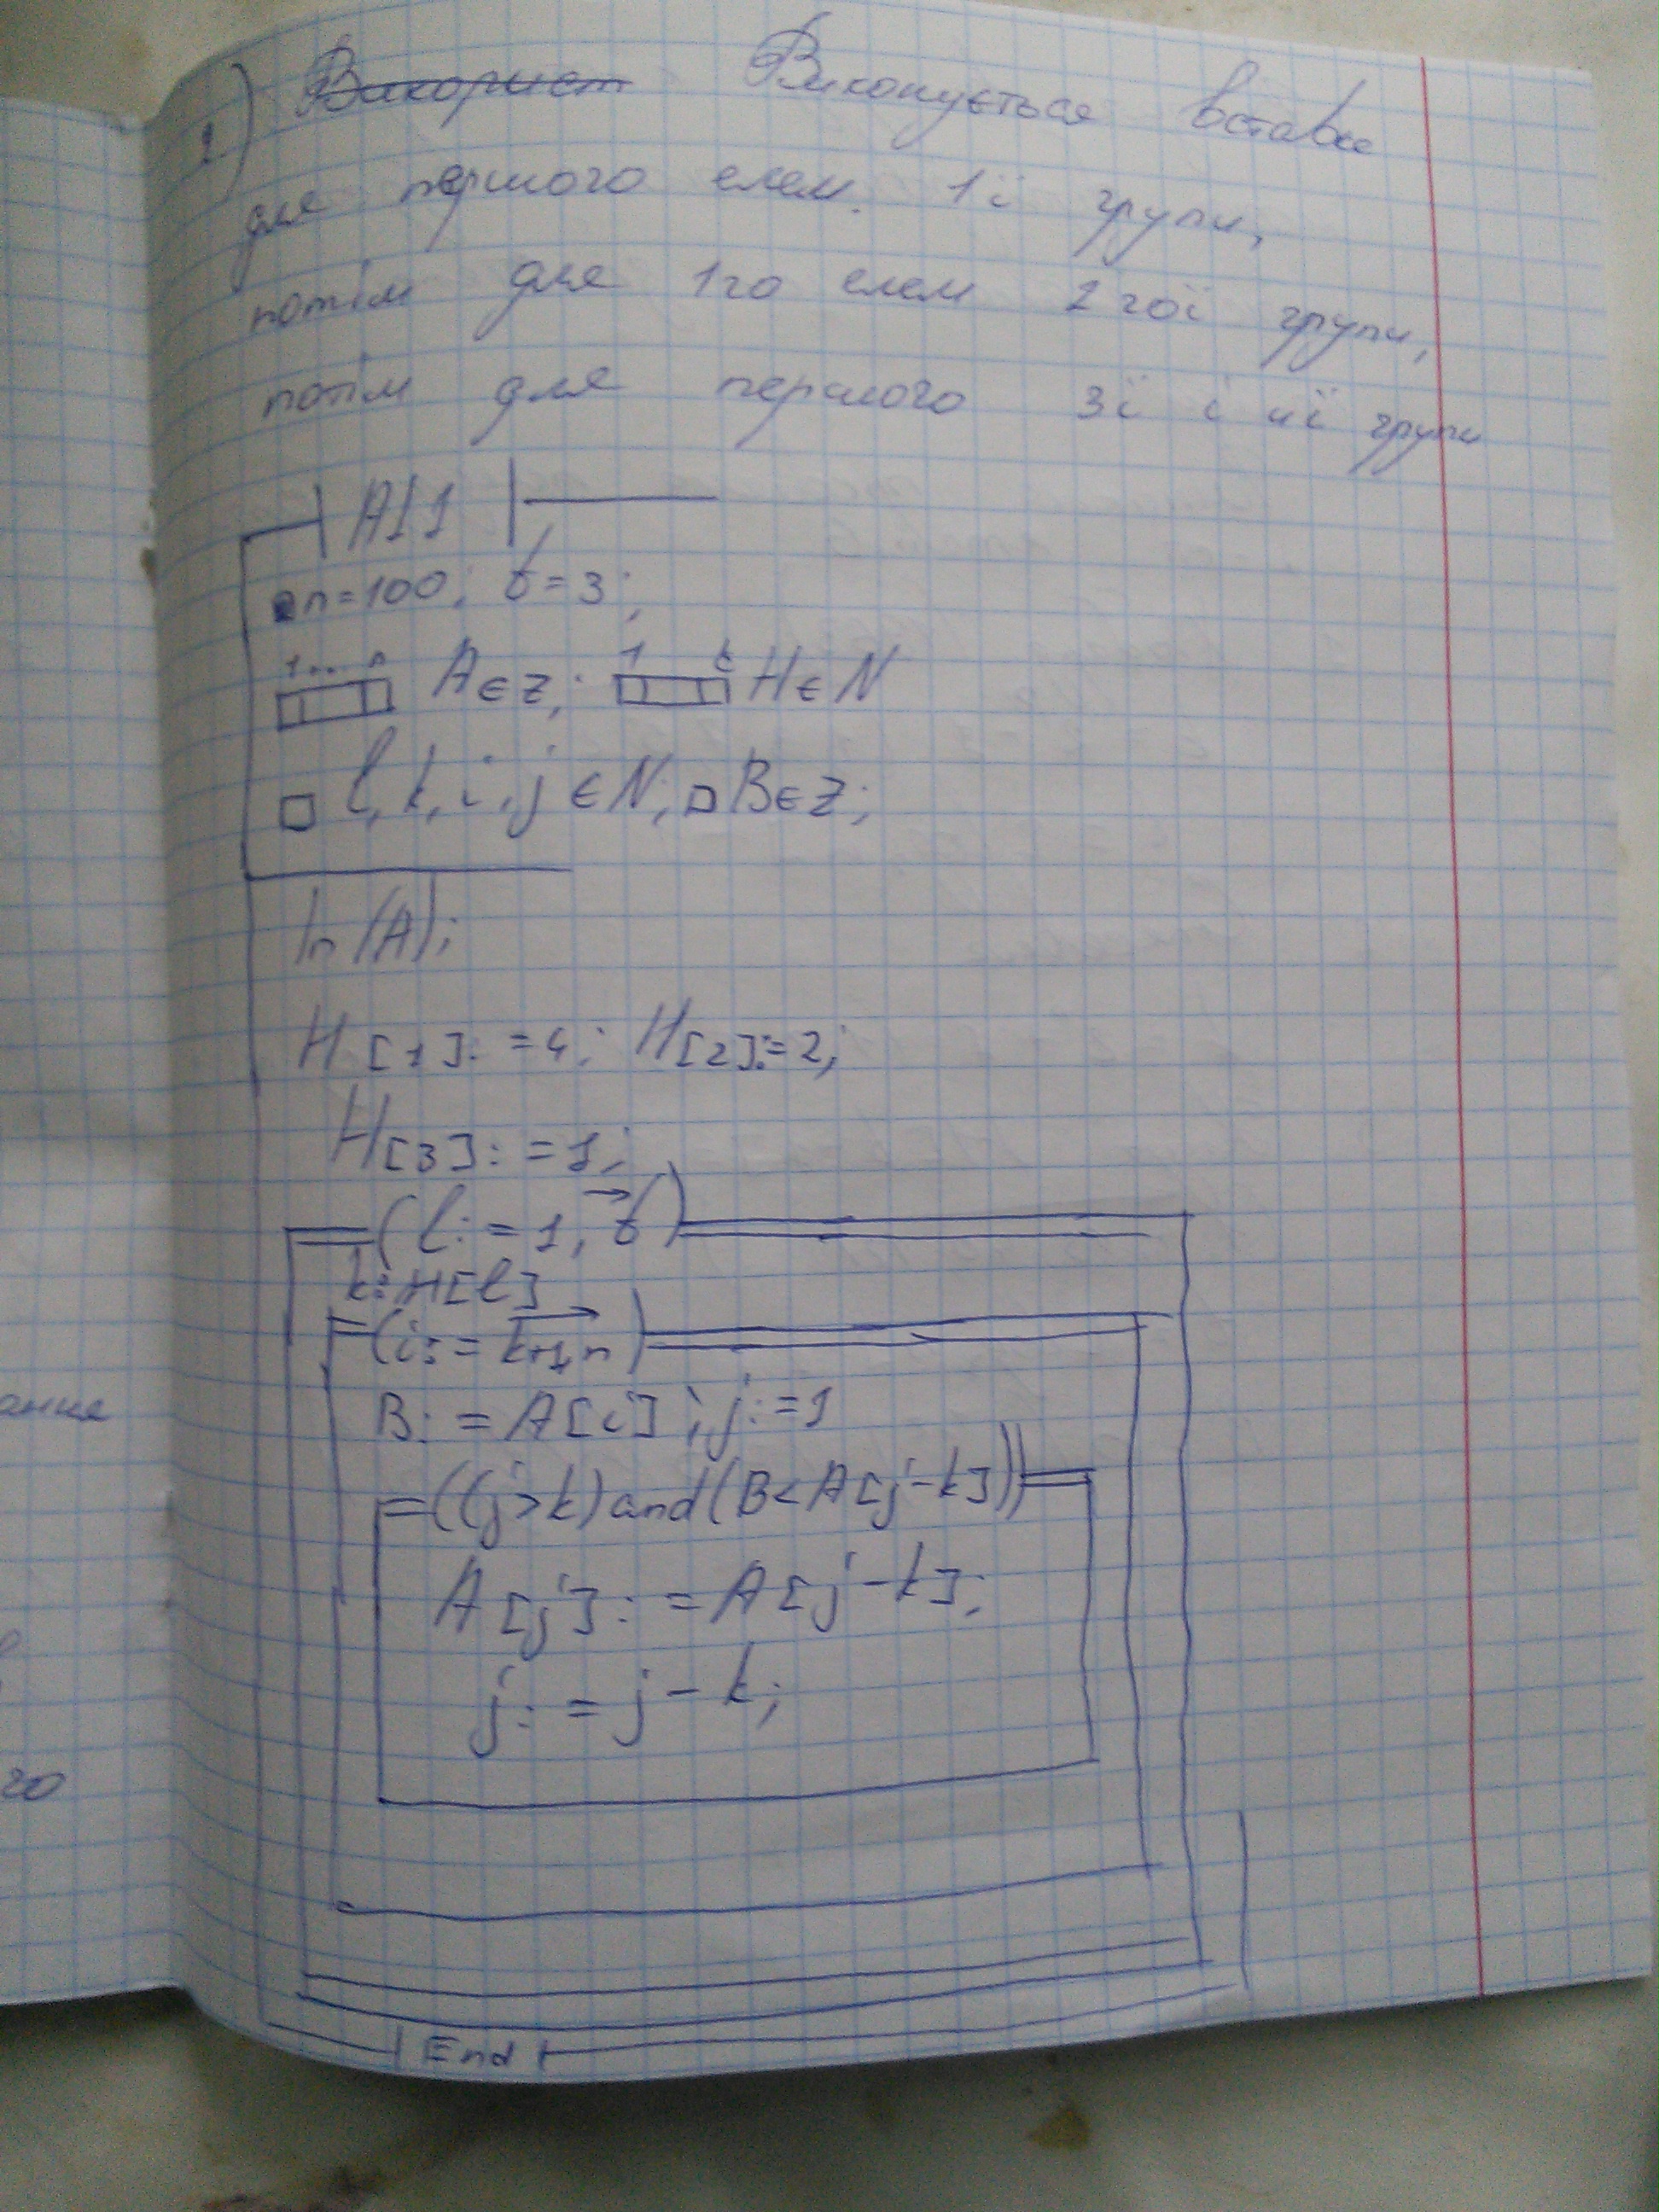 2) Використ Виконується вставка
для першого елем. 1ї групи,
потім для 1го елем 2гої групи,
потім для першого 3ї і 4ї групи
A11
n=100; t=3;
1.. n A∈Z; 1 t H∈N
l, k, i, j ∈N, B∈Z;
In(A);
H[1]:=4; H[2]:=2;
H[3]:=1;
(l:=1, t)
k:=H[l]
(i:=k+1,n)
B:=A[i]; j:=1
((j>k)and(B<A[j-k]))
A[j]:=A[j-k];
j:=j-k;
End
ание
го